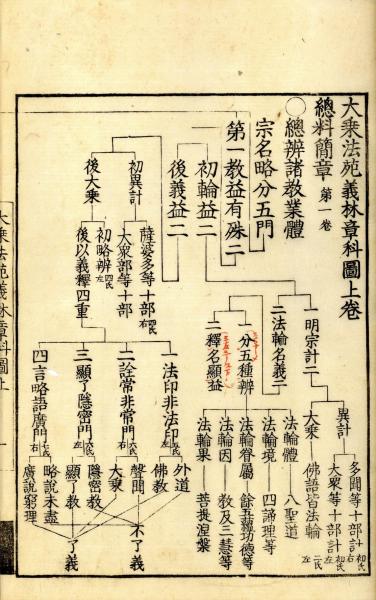 大乘法苑義林章科圖上卷
總料簡章 第一卷
○總辨諸教業體
宗名略分五門
第一教益有殊二
初輪益二
後義益二
一明宗計二
異計
多聞等十部計 初右
大眾等十部計 初左
大乘
佛語皆法輪 二左
二法輪名義二
一分五種辨
法輪體
八聖道
法輪境
四諦理等
法輪眷屬
餘五蘊功德等
法輪因
教及三慧等
法輪果
菩提涅槃
二釋名顯益
初異計
薩婆多等十部
大眾部等十部
後大乘
初略辨
後以義釋四重
一法印非法印
外道
佛教
二詮常非常門
聲聞
大乘
三顯了隱密門
隱密教
顯了教
四言略語廣門
略說未盡
廣說窮理
不了義
了義
大乘法苑義林章科圖上